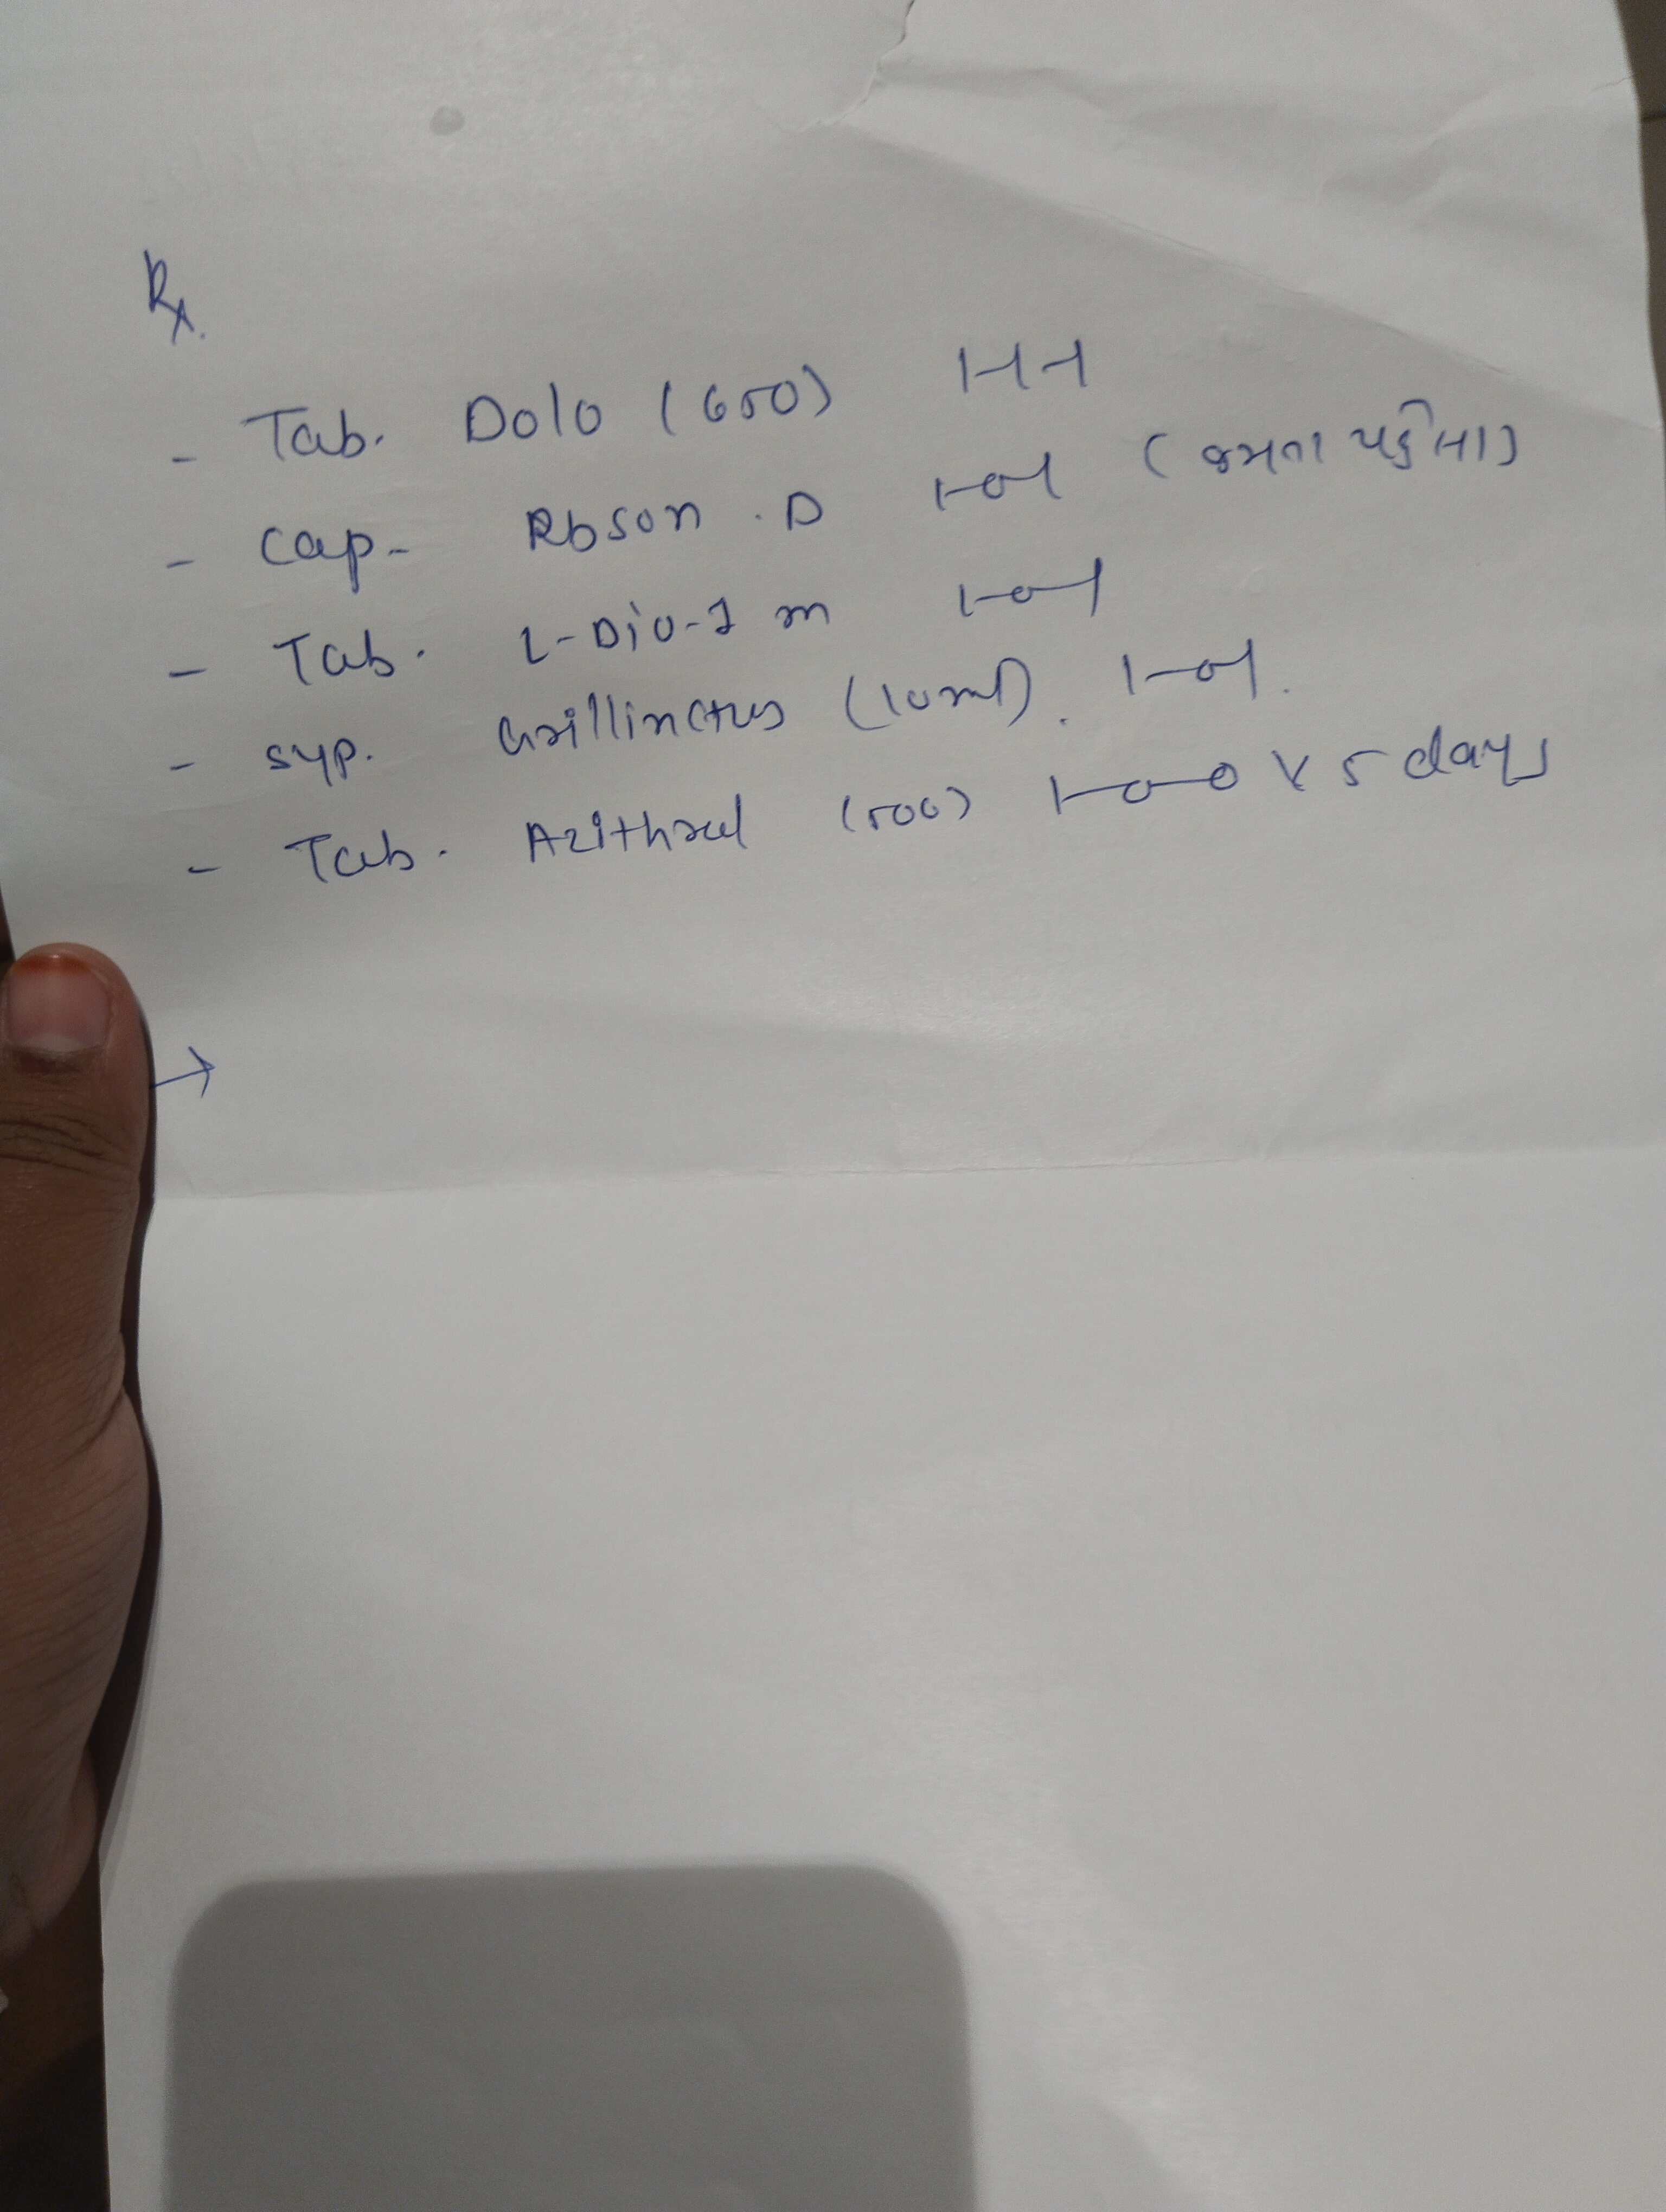 Rx.
- Tab. Dolo (650) 1-1-1
- Cap- Rbson . D 1-0-1 (જમતા પહેલા)
- Tab. L-Dio-1 m 1-0-1
- syp. Grillinctus (10ml). 1-0-1.
- Tab. Azithral (500) 1-0-0 x 5 days
→